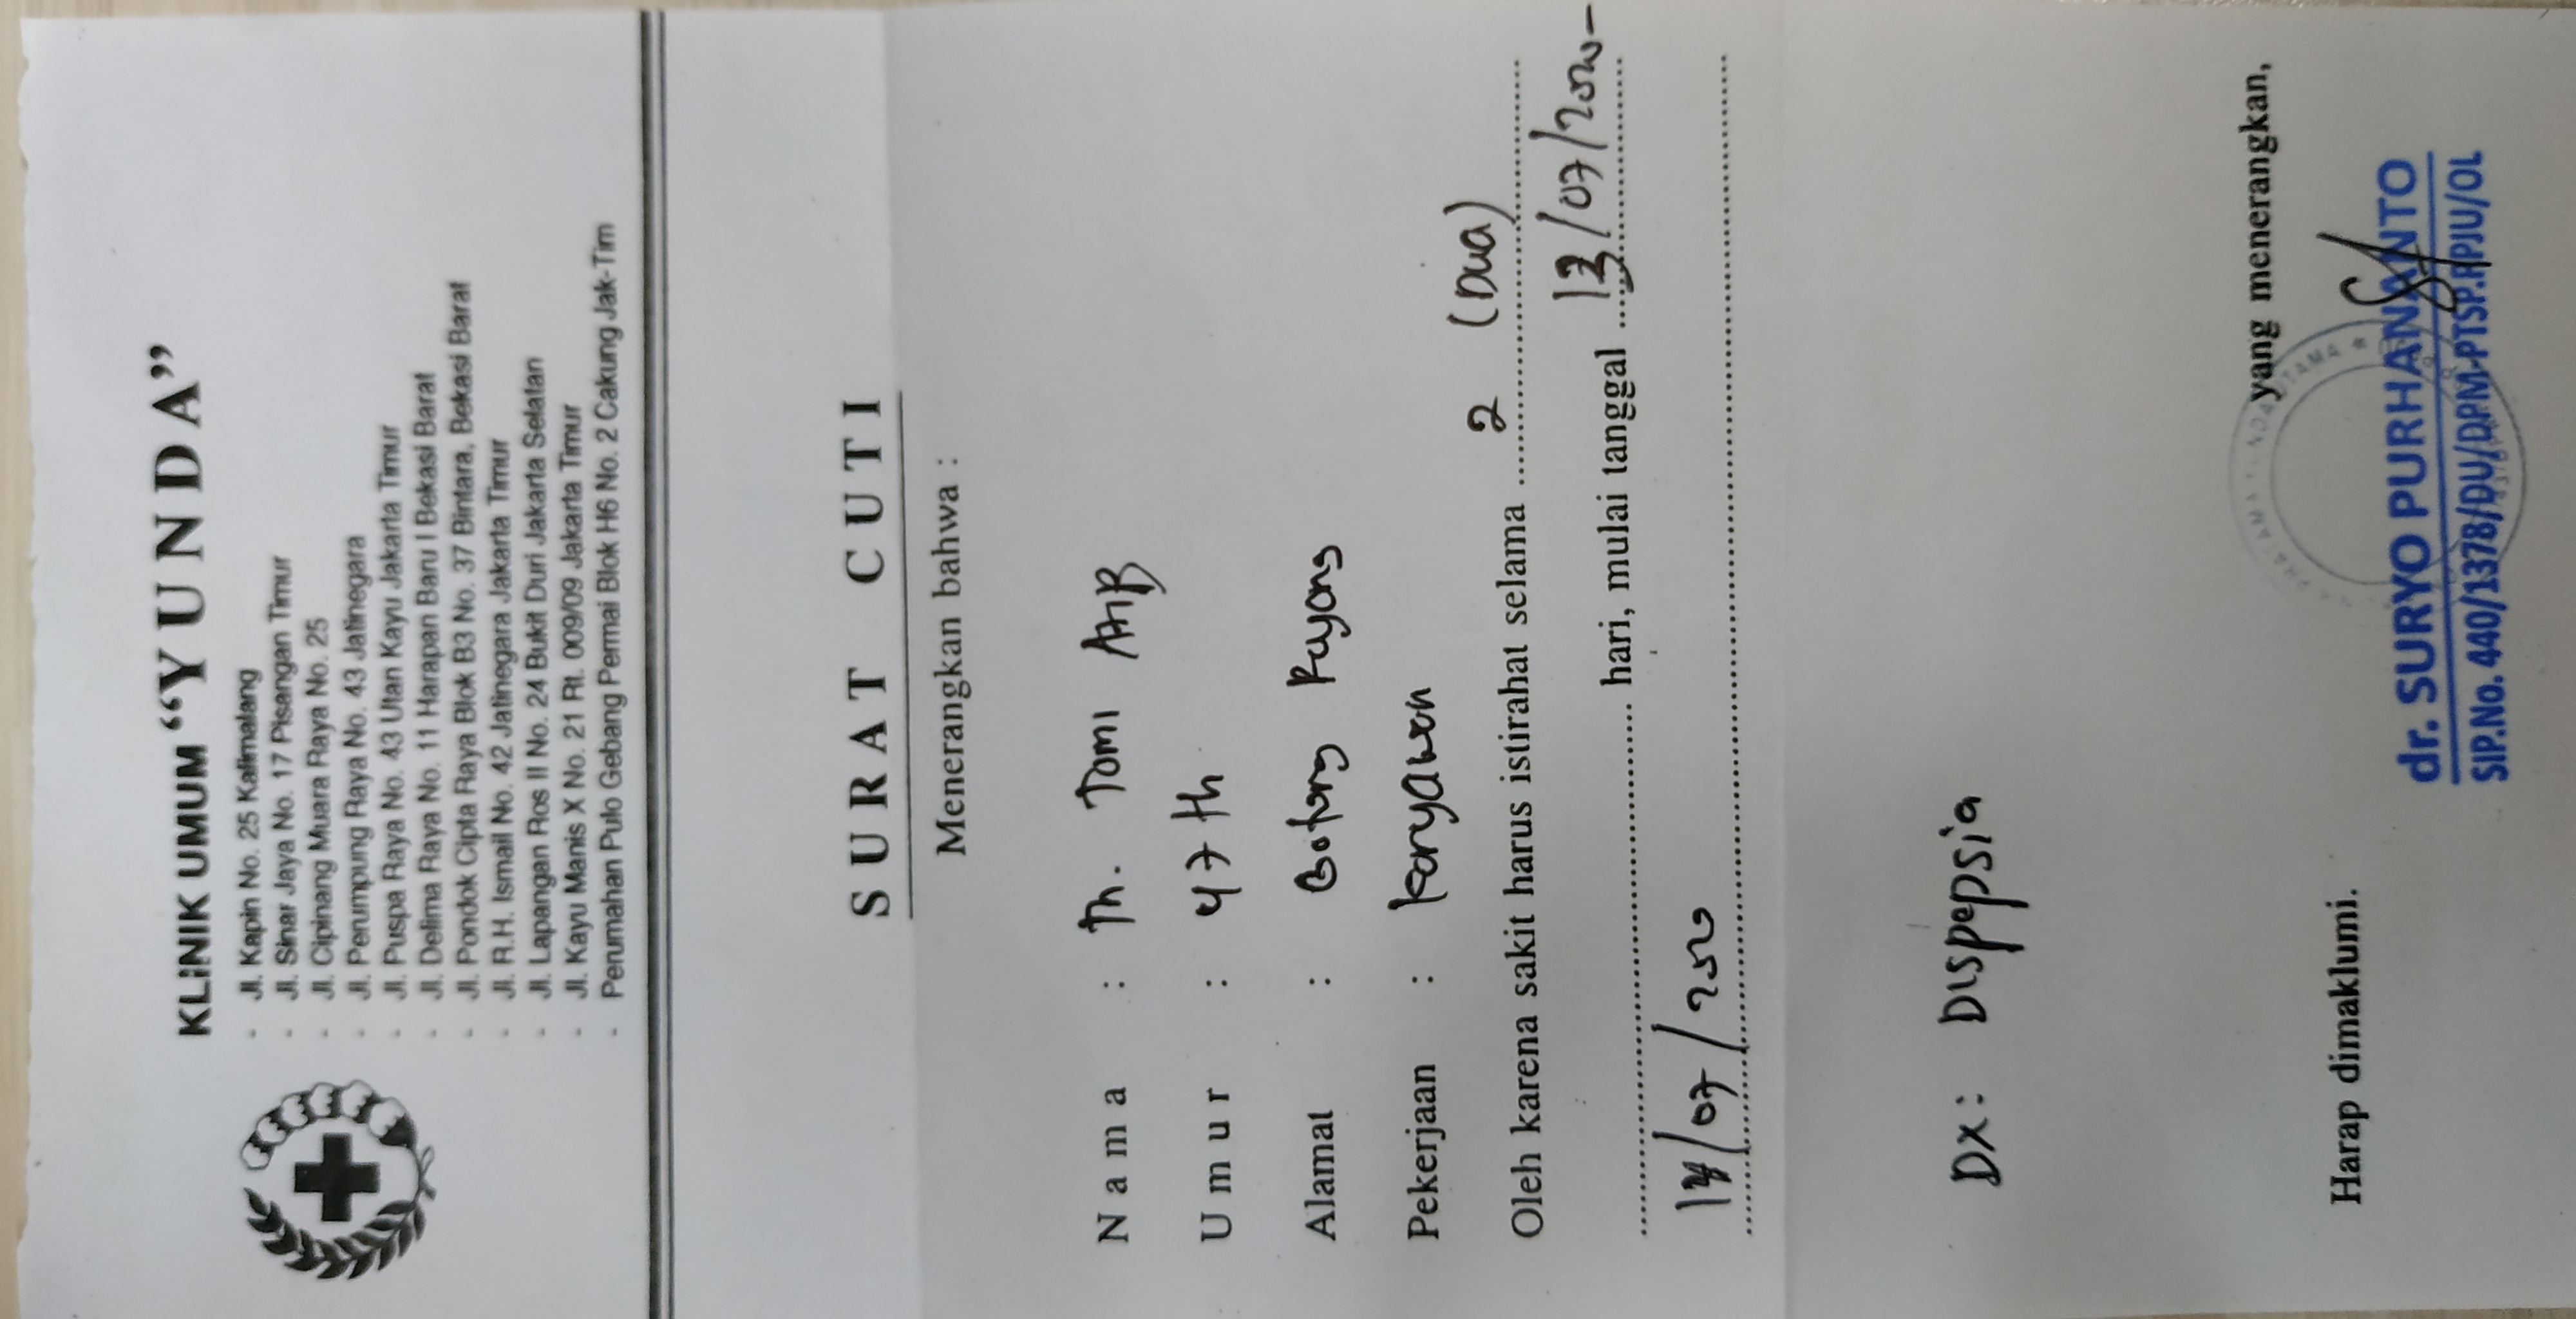 KLiNIK UMUM “YUNDA”
- Jl. Kapin No. 25 Kalimalang
- Jl. Sinar Jaya No. 17 Pisangan Timur
- Jl. Cipinang Muara Raya No. 25
- Jl. Perumpung Raya No. 43 Jatinegara
- Jl. Puspa Raya No. 43 Utan Kayu Jakarta Timur
- Jl. Delima Raya No. 11 Harapan Baru I Bekasi Barat
- Jl. Pondok Cipta Raya Blok B3 No. 37 Bintara, Bekasi Barat
- Jl. R.H. Ismail No. 42 Jatinegara Jakarta Timur
- Jl. Lapangan Ros II No. 24 Bukit Duri Jakarta Selatan
- Jl. Kayu Manis X No. 21 Rt. 009/09 Jakarta Timur
- Perumahan Pulo Gebang Permai Blok H6 No. 2 Cakung Jak-Tim
SURAT CUTI
Menerangkan bahwa :
Nama : Tomi
Umur : 47 th
Alamat : Gotong Royong
Pekerjaan : Karyawan
Oleh karena sakit harus istirahat selama 2 (Dua)
hari, mulai tanggal 13/07/2020 -
14/07/2020
DX: Dispepsia
yang menerangkan,
Harap dimaklumi.
dr. SURYO PURHANANTO
SIP.No. 440/1378/DU/DPM-PTSP.PPJU/OL